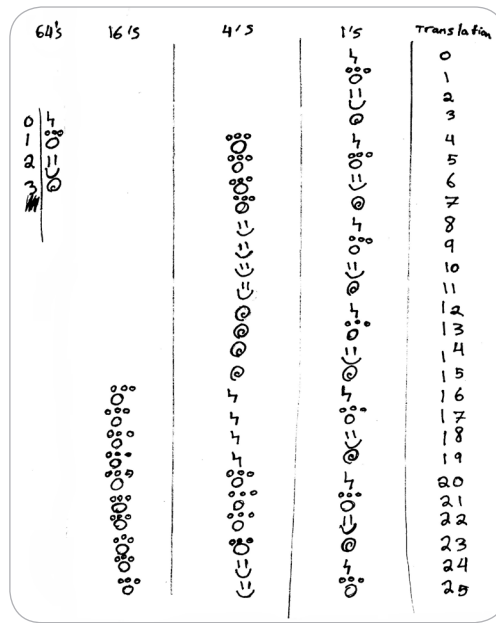 64's 16's 4's 1's Translation
0
1
2
0 3
1 4
2 5
3 6
7
8
9
10
11
12
13
14
15
16
17
18
19
20
21
22
23
24
25